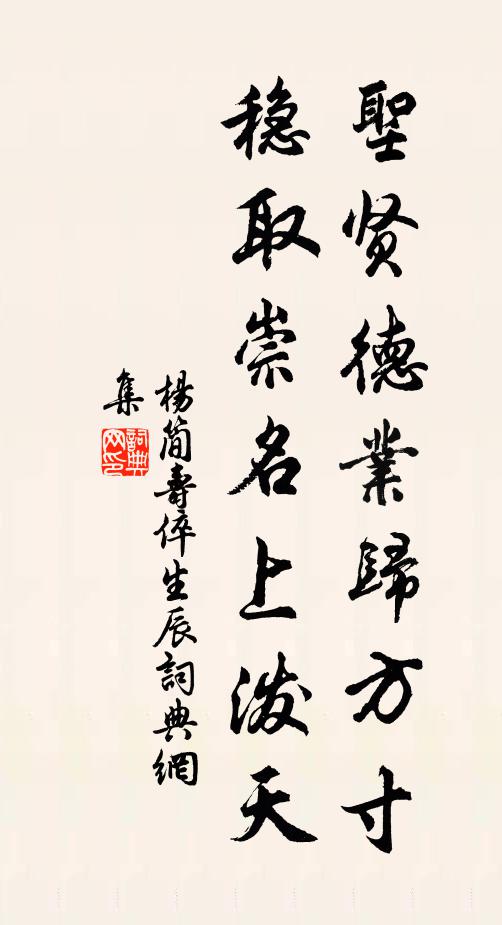 聖贤德業歸方寸
稳取崇名上泼天
楊简壽倅生辰詞典網
集
詞典网印